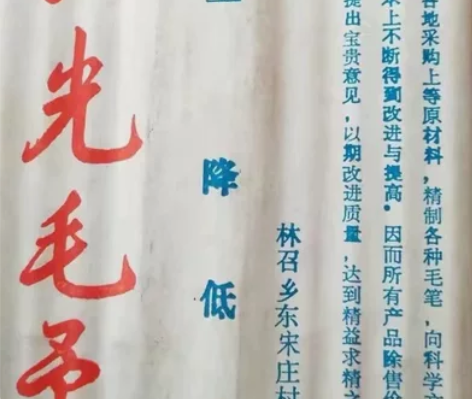 各地采购上等原材料，精制各种毛笔，向科学
本上不断得到改进与提高。因而所有产品除售
提出宝贵意见，以期改进质量，达到精益求精之
林召乡东宋庄村
降低
光毛